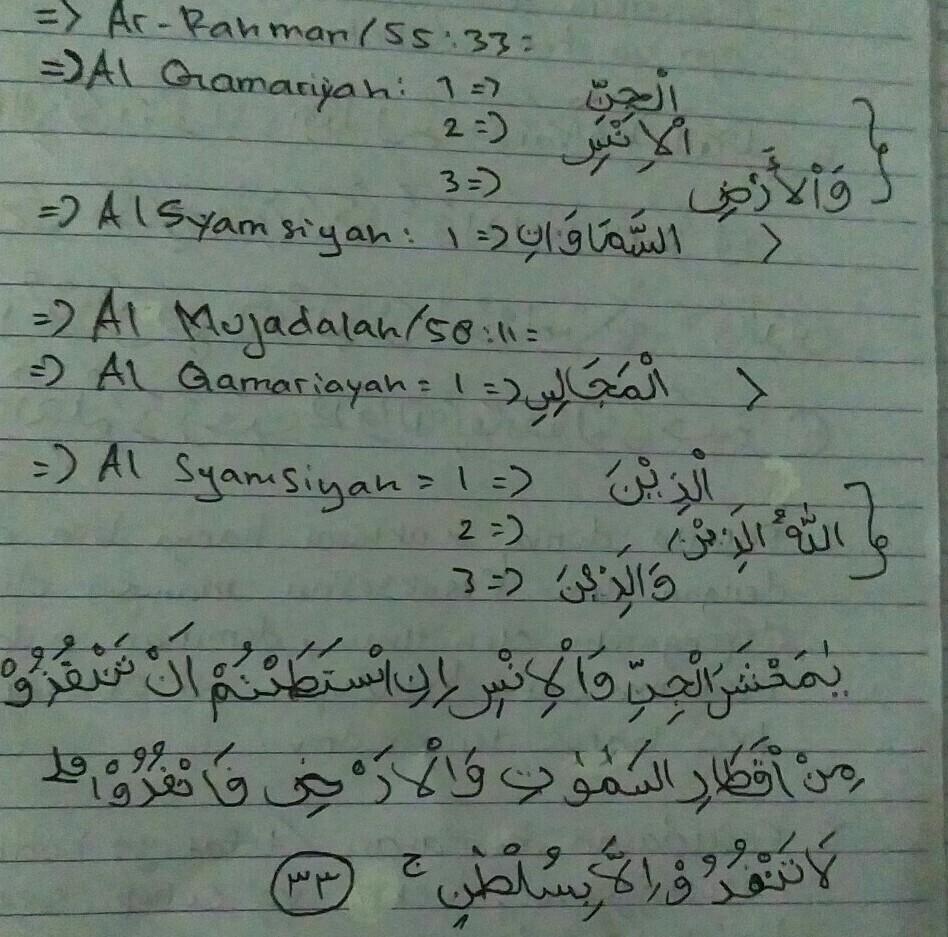 => Ar-Rahman/55:33=
=> Al Qamariyah: 1 => الْجِنّ
2 => الْاِنْسِ
3 => وَالْأَرْضِ
=> Al Syamsiyah: 1 => السَّمَاوَاتِ
=> Al Mujadalah/58:11=
=> Al Qamariayah = 1 => الْمَجَالِسِ
=> Al Syamsiyah = 1 => الْذِيْنَ
2 => اللّٰهُ الَذِيْنَ
3 => وَالَذِيْنَ
يٰمَعْشَرَ الْجِنِّ وَالْاِنْسِ اِنِ اسْتَطَعْتُمْ اَنْ تَنْفُذُوْ
مِنْ اَقْطَارِ السَّمٰوٰتِ وَالْاَرْضِ فَانْفُذُوْا ۗ
لَا تَنْفُذُوْنَ اِلَّا بِسُلْطٰنٍ ۚ ٣٣